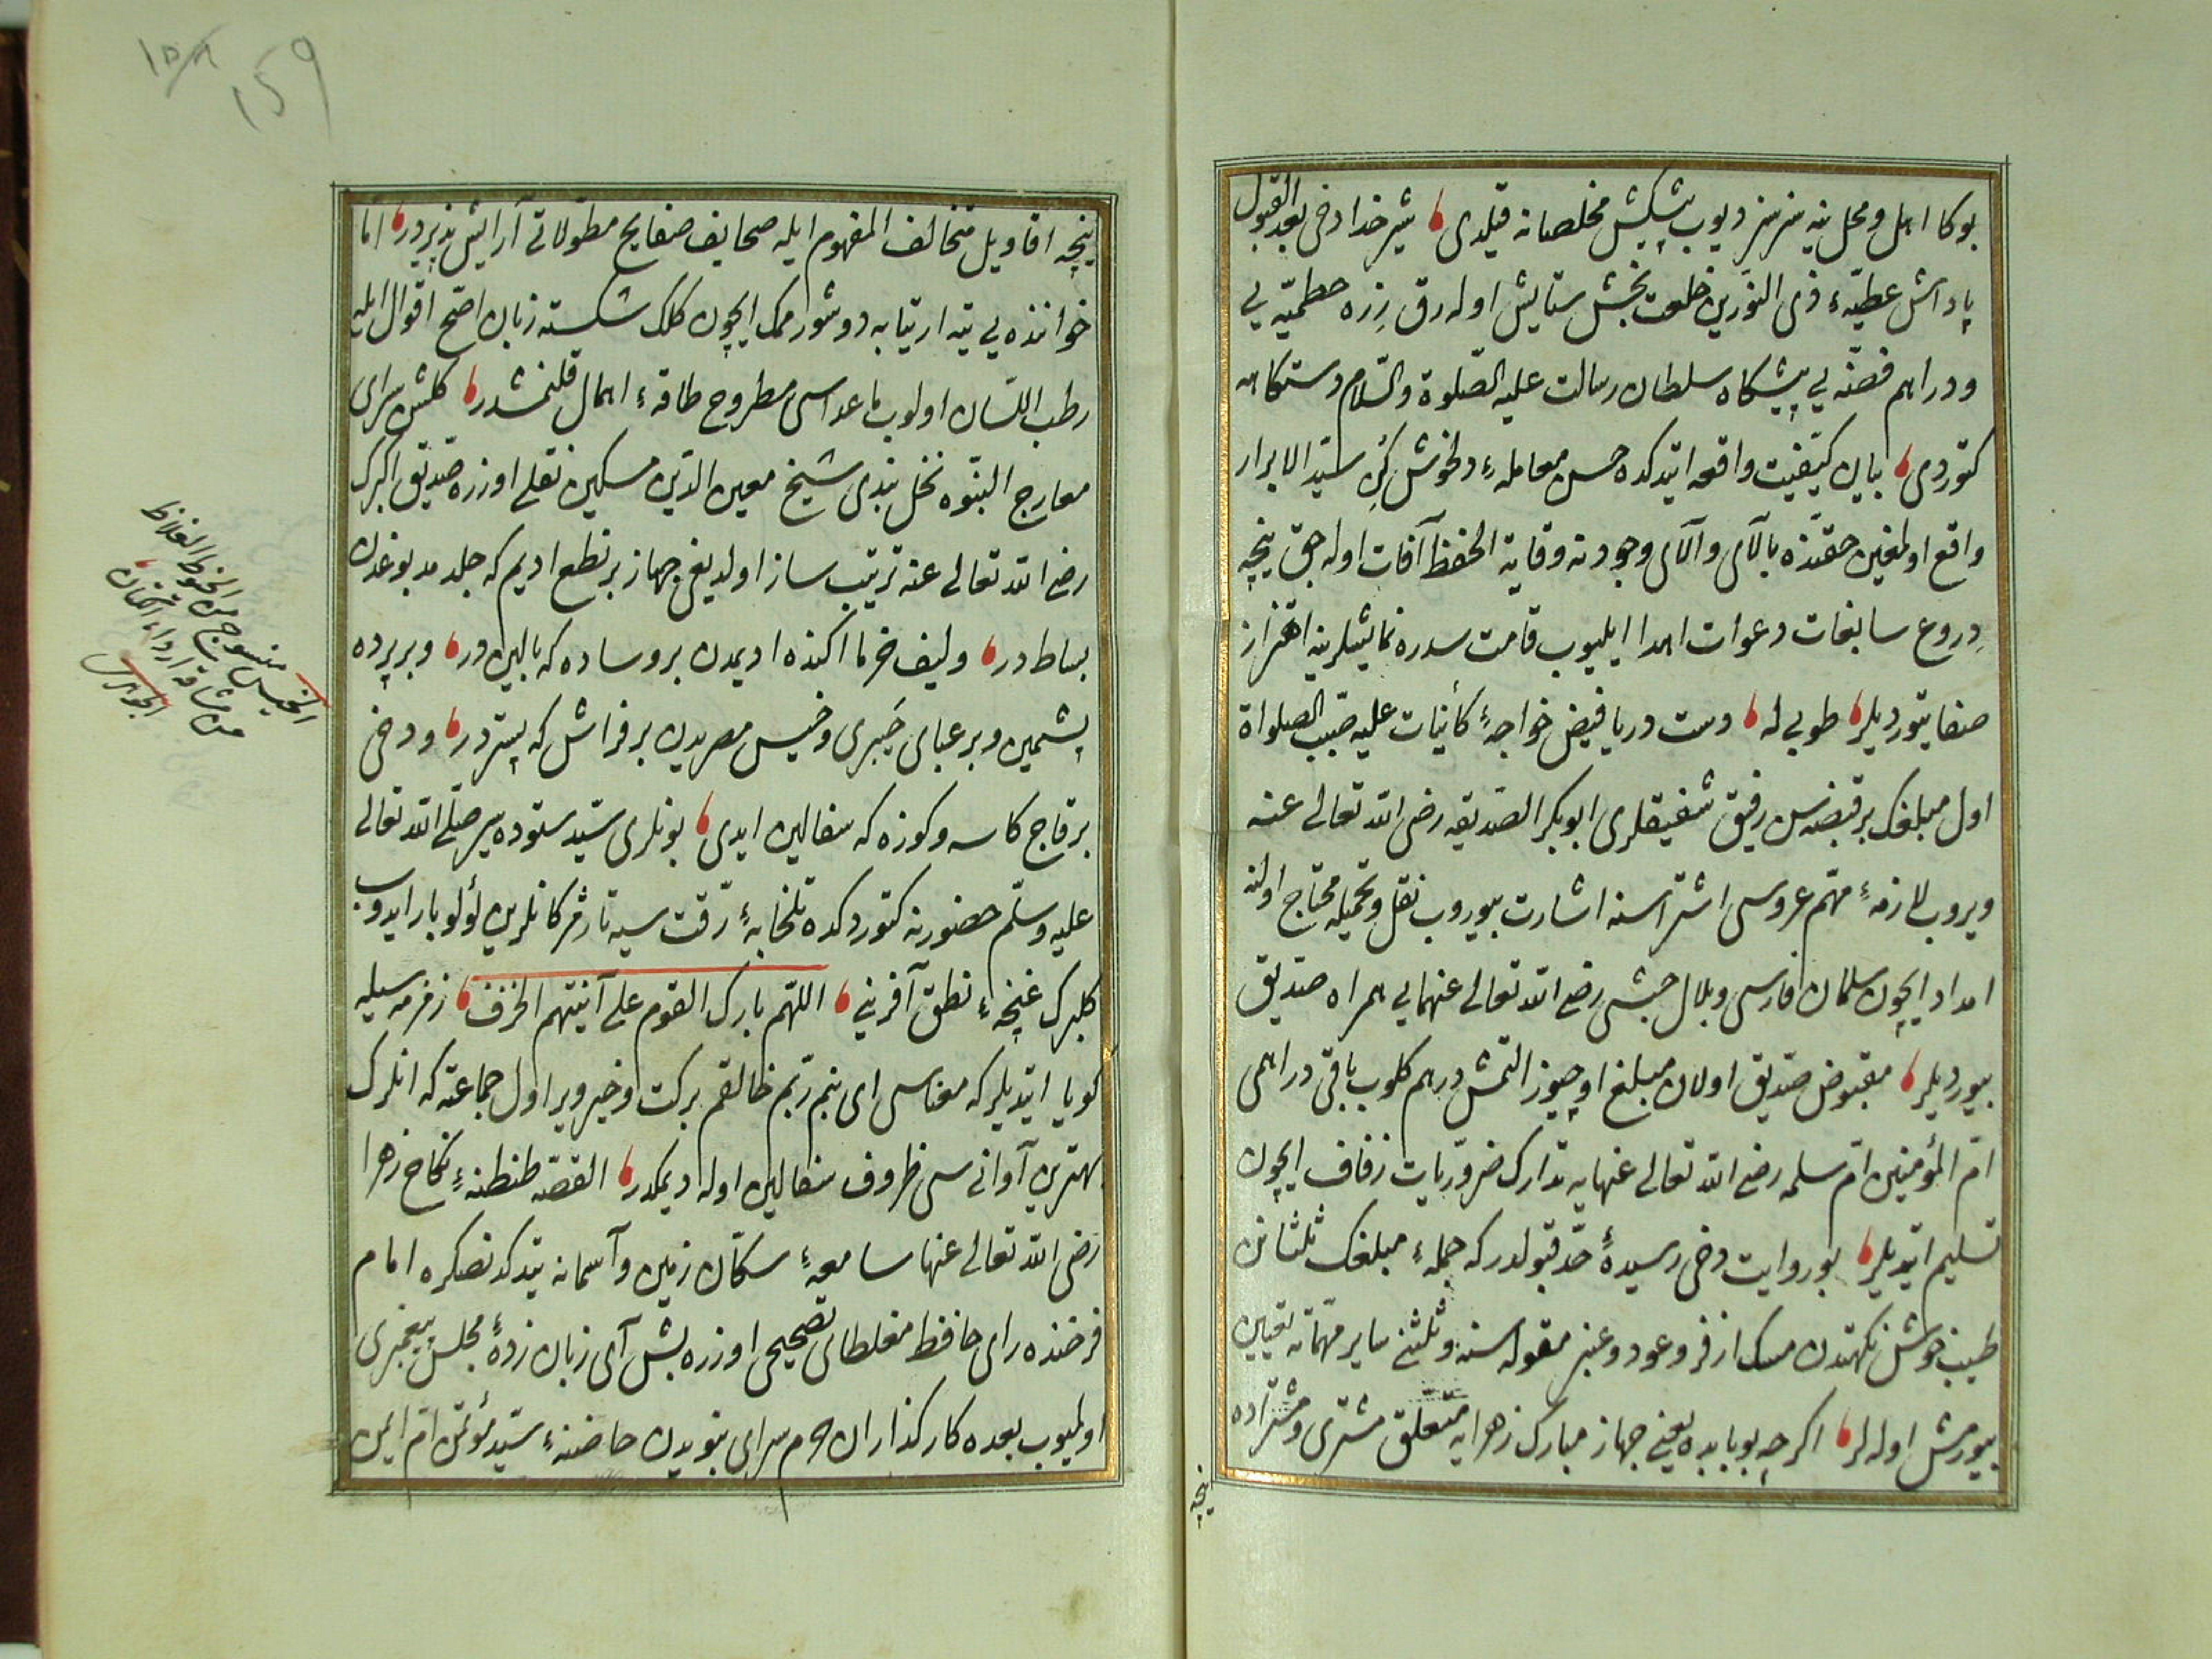 بوكا اهل و محل ينه سز سز ديوب پيشكش مخلصانه قيلدى شير خدا دخى بعد القبول
پاداش عطيّهٔ ذى النّورين خلعت بخش ستايش اوله رق زره حطميّه يى
و دراهم فضّه يى پيشكاه سلطان رسالت عليه الصّلوة والسّلام دستكاهه
كتوردى بيان كيفيت واقعه ايتدكده حسن معاملهٔ دلخوش كن سيّد الابرار
واقع اولمغين حقنده بالآى و آلآى وجودنه وقاية الحفظ آفات اوله جق نيچه
دروع سابغات دعوات اهدا ايليوب قامت سدره نمايشلرينه اهتزاز
صفا يتورديلر طوبى له دست دريا فيض خواجهٔ كائنات عليه صيّب الصلواة
اول مبلغك بر قبضه سن رفيق شفيقلرى ابوبكر الصّديقه رضى الله تعالى عنه
ويروب لازمهٔ مهمّ عروسى اشتراسنه اشارت بيوروب نقل و تحميله محتاج اولنه
امداد ايچون سلمان فارسى و بلال حبشى رضى الله تعالى عنهمايى همراه صدّيق
بيورديلر مقبوض صدّيق اولان مبلغ اوچيوز التمش درهم كلوب باقى دراهمى
امّ المؤمنين امّ سلمه رضى الله تعالى عنهايه تدارك ضروريات زفاف ايچون
تسليم ايتديلر بو روايت دخى رسيدهٔ حدّ قبولدر كه جملهٔ مبلغك ثلثانن
طيب خوش نكهتدن مسك اذفر و عود و عنبر مقوله سنه و ثلثنى ساير مهمّاته تعيين
بيورمش اوله لر اكرچه بو بابده يعنى جهاز مبارك زهرايه متعلّق مشترى و مشتراده
نيچه
نيچه اقاويل متخالف المفهوم ايله صحايف صفايح مطوّلاتى آرايش پذيردر امّا
خواننده يى تيه ارتيابه دوشورممك ايچون كلك شكسته زبان اصحّ اقوال ايله
رطب اللّسان اولوب ما عداسى مطروح طاقهٔ اهمال قلنمشدر كلشن سراى
معارج النبّوه نخل بندى شيخ معين الدّين مسكين نقلى اوزره صدّيق اكبرك
رضى الله تعالى عنه ترتيب ساز اولديغى جهاز بر نطع اديم كه جلد مدبوغدن
بساطدر و ليف خرما آكنده اديمدن بر وساده كه باليندر و بر پرده
پشمين و بر عباى خيبرى و خيس مصريدن بر فراش كه بستردر و دخى
بر قاچ كاسه و كوزه كه سفالين ايدى بونلرى سيّد ستوده سير صلّى الله تعالى
عليه وسلّم حضورينه كتوردكده تلخابهٔ رقت سينه تا رمژكانلرين لؤلؤ بار ايدوب
كلبرك غنچهٔ نطق آفرينى اللهّم بارك القوم على آنيتهم الخزف زمزمه سيله
كويا ايتديلر كه معناسى اى بنم ربّم خالقم بركت و خير وير اول جماعته كه انلرك
بهترين آوانى سى ظروف سفالين اوله ديمكدر القصّه طنطنهٔ نكاح زهرا
رضى الله تعالى عنها سامعهٔ سكّان زمين و آسمانه يتدكدنصكره امام
فرخنده راى حافظ مغلطاى تصحيحى اوزره بش آى زبان زدهٔ مجلس پيغمبرى
اولميوب بعده كاركذاران حرم سراى نبويدن حاضنهٔ سيّد مؤتمن امّ ايمن
الخيس منسوج من الخيوط الغلاظ
من مشاقة اردأ الكتان
الجوهرى
159